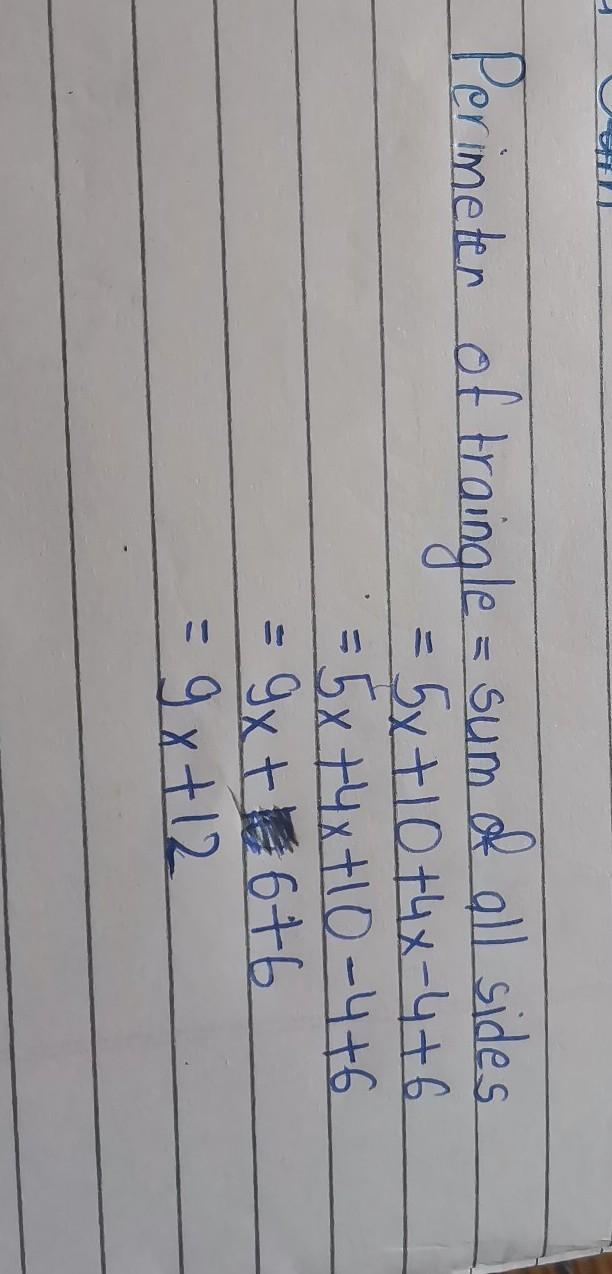 Perimeter of traingle = sum of all sides
= 5x+10+4x-4+6
= 5x+4x+10-4+6
= 9x+ 6+6
= 9x+12